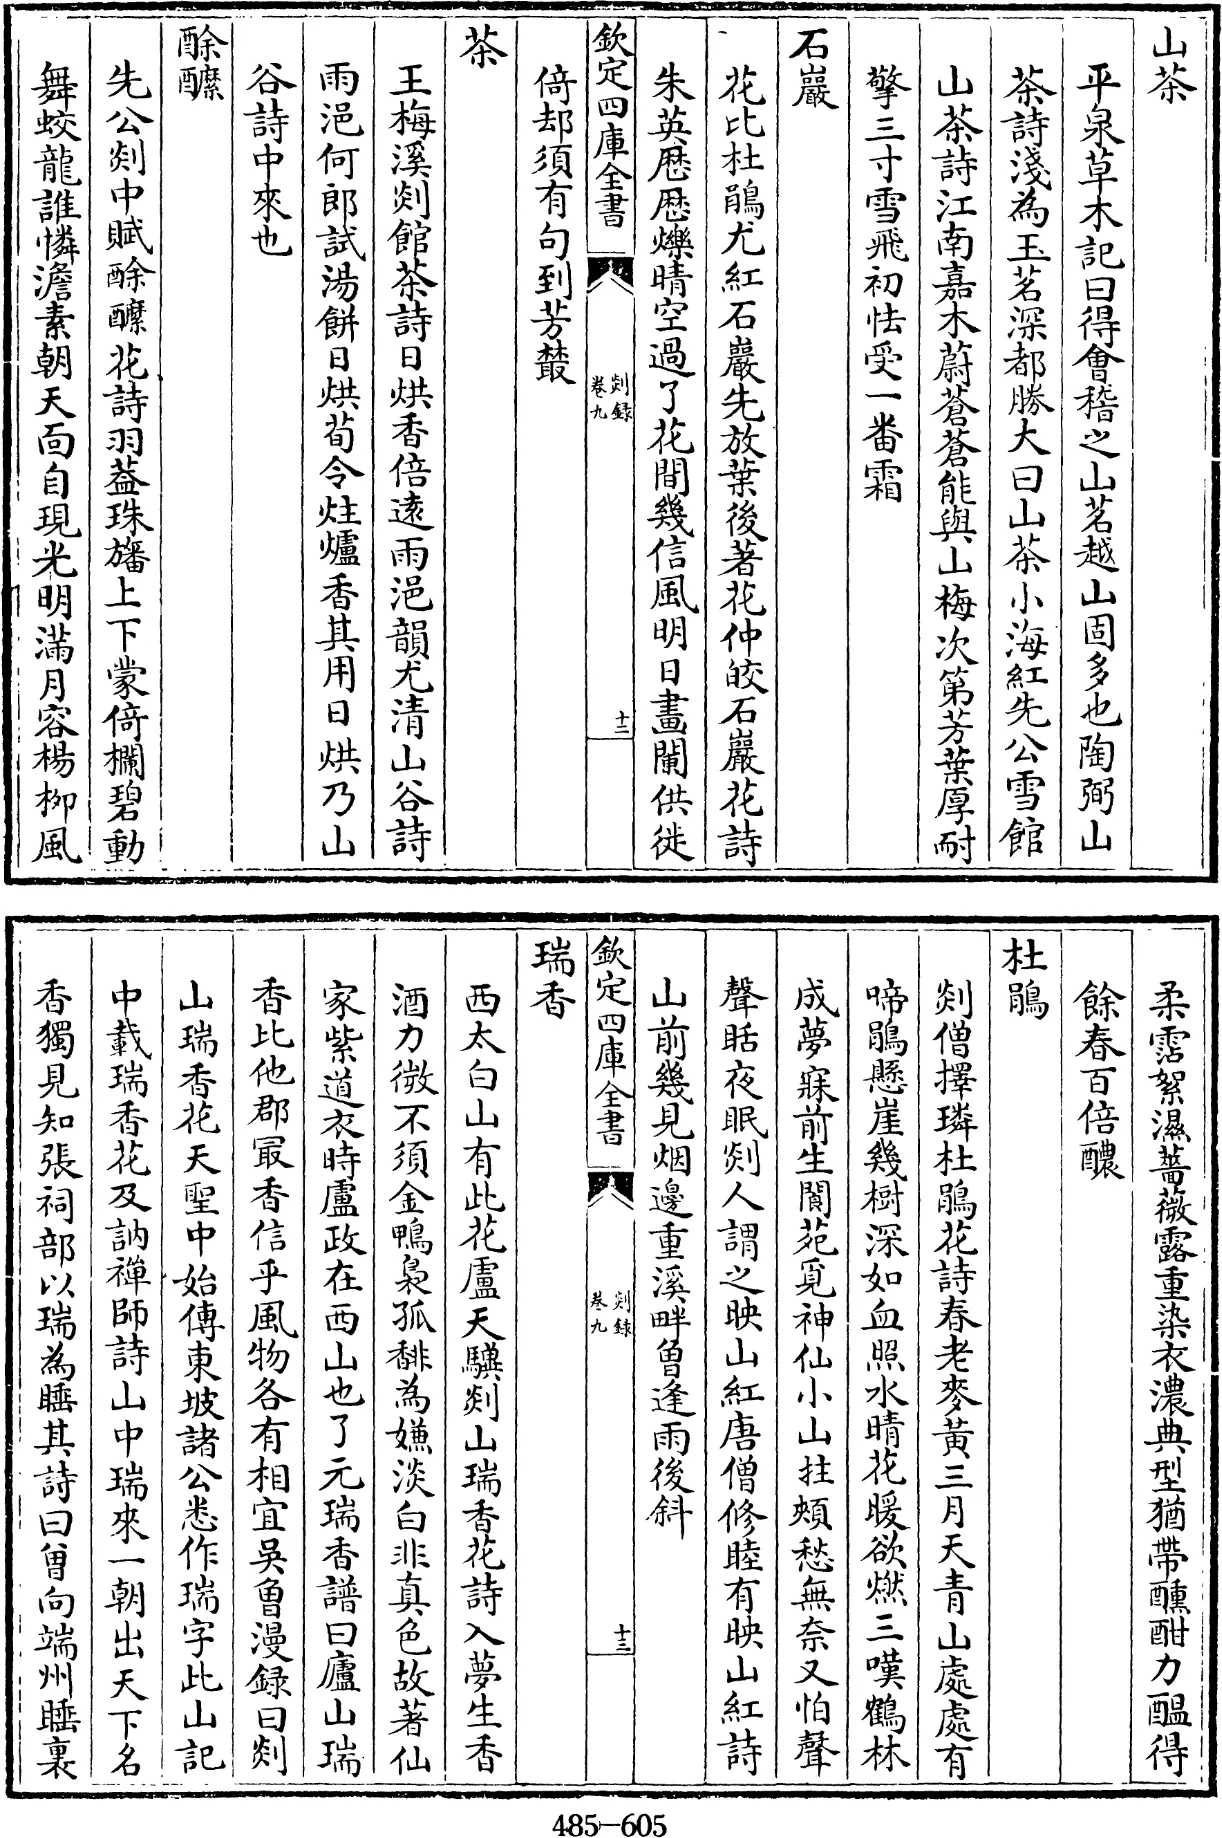 山茶
平泉草木記曰得㑹稽之山茗越山固多也陶弼山
茶詩淺為玉茗深都勝大曰山茶小海紅先公雪館
山茶詩江南嘉木蔚蒼蒼能與山梅次第芳葉厚耐
擎三寸雪飛初怯受一番霜
石巖
花比杜鵑尤紅石巖先放葉後著花仲皎石巖花詩
朱英歴歴爍晴空過了花間幾信風明日畫闌供徙
欽定四庫全書
剡録
卷九
十二
倚却須有句到芳叢
茶
王梅溪剡館茶詩日烘香倍逺雨浥韻尤清山谷詩
雨浥何郎試湯餅日烘荀令炷爐香其用日烘乃山
谷詩中來也
酴醿
先公剡中賦酴醿花詩羽葢珠旛上下蒙倚欄碧動
舞蛟龍誰憐澹素朝天面自現光明滿月容楊柳風
柔霑絮濕薔薇露重染衣濃典型猶帶醺酣力醖得
餘春百倍醲
杜鵑
剡僧擇璘杜鵑花詩春老麥黄三月天青山處處有
啼鵑懸崖幾樹深如血照水晴花暖欲燃三嘆鶴林
成夢寐前生閬苑覓神仙小山拄頰愁無奈又怕聲
聲聒夜眠剡人謂之映山紅唐僧修睦有映山紅詩
山前幾見烟邊重溪畔曾逢雨後斜
欽定四庫全書
剡録
卷九
十三
瑞香
西太白山有此花盧天驥剡山瑞香花詩入夢生香
酒力微不須金鴨裊孤馡為嫌淡白非真色故著仙
家紫道衣時盧政在西山也了元瑞香譜曰廬山瑞
香比他郡最香信乎風物各有相宜吳曾漫録曰剡
山瑞香花天聖中始傳東坡諸公悉作瑞字此山記
中載瑞香花及訥禪師詩山中瑞來一朝出天下名
香獨見知張祠部以瑞為睡其詩曰曾向端州睡裏
485—605